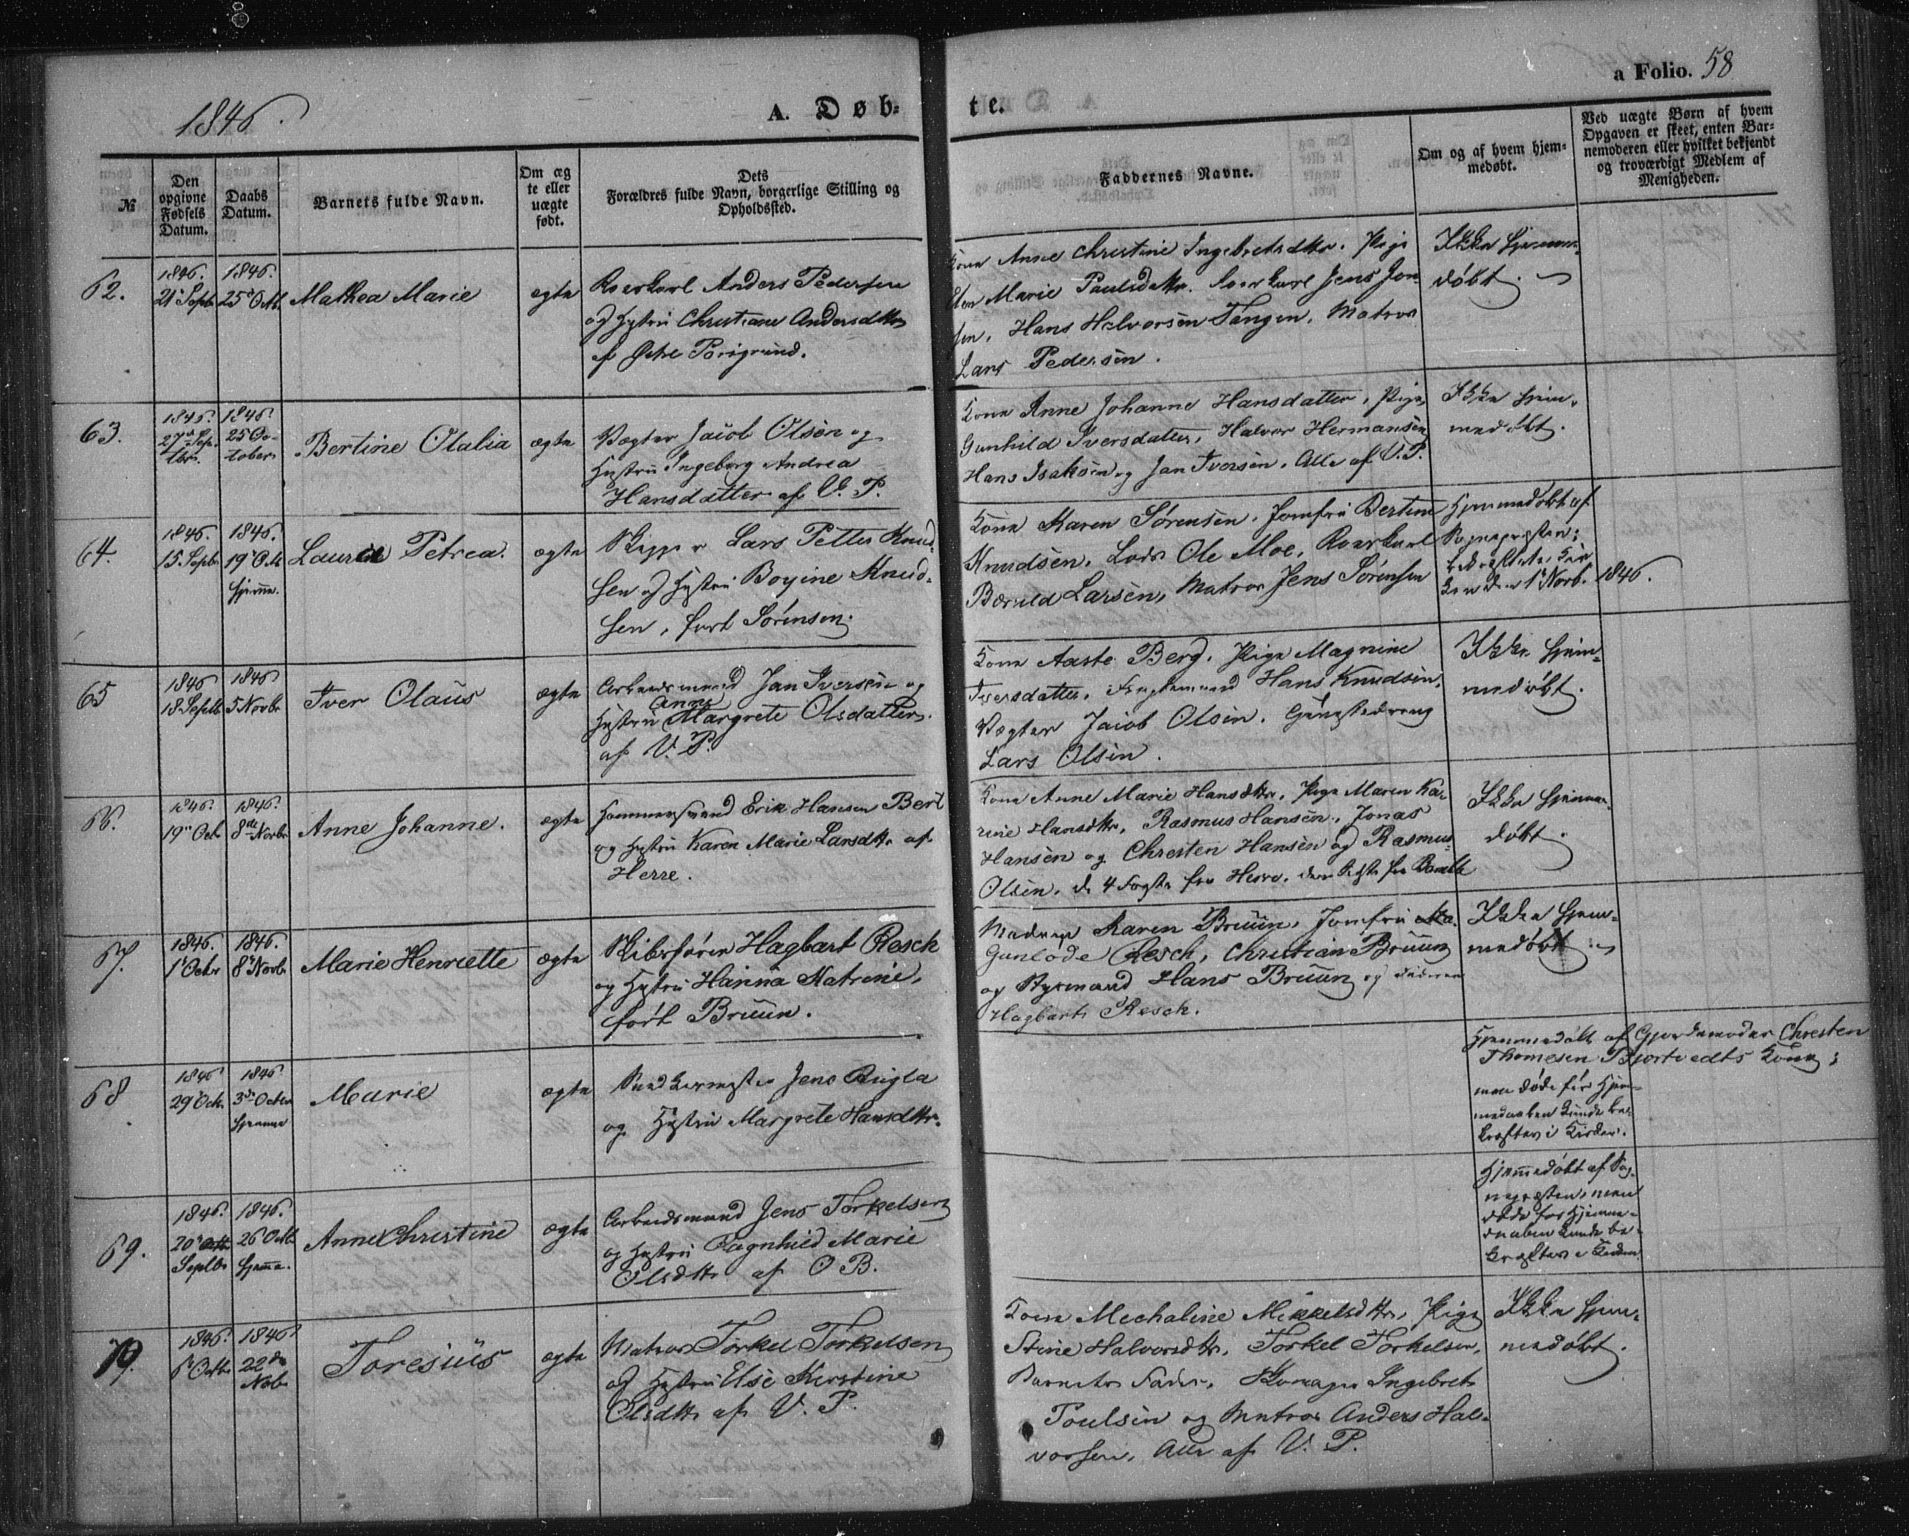 1846.
A. Døb-
te.
a Folio. 58
№
Den
opgivne
Fødsels
Datum.
Daabs
Datum.
Barnets fulde Navn.
Om æg
te eller
uægte
født.
Dets
Forældres fulde Navn, borgerlige Stilling og
Opholdssted.
Faddernes Navne.
Om og af hvem hjem-
medøbt.
Ved uægte Børn af hvem
Opgaven er skeet, enten Bar-
nemoderen eller hvilket bekjendt
og troværdigt Medlem af
Menigheden.
62.
1846.
21 Septb
1846.
25 Octb
Mathea Marie
ægte
Roerkarl Anders Pedersen
og Hustru Christiane Andersdttr
af Østre Porsgrund.
Kone Anne Christine Ingebretsdttr. Pige
Elen Marie Paulsdttr. Roerkarl Jens Jen-
sen, Hans Halvorsen Tangen, Matros
Lars Pedersen.
Ikke hjemme-
døbt.
63.
1846.
27de Sep-
tbr.
1846
25 Oc-
tober
Bertine Otalia
ægte
Vægter Jacob Olsen og
Hustru Ingeborg Andrea
Hansdatter af V. P.
Kone Anne Johanne Hansdatter, Pige
Gunhild Iversdatter, Halvor Hermansen
Hans Isaksen og Jan Iversen. Alle af V. P.
Ikke hjem-
medøbt.
64.
1846.
15 Septb.
1846.
19 Octb
hjemme.
Laurae Petrea.
ægte
Skipper Lars Petter Knud-
sen og Hustru Boyine Knud-
sen, født Sørensen.
Kone Karen Sørensen, Jomfru Bertine
Knudsen, Lods Ole Moe, Roerkarl
Bæruld Larsen, Matros Jens Sørensen
Hjemmedøbt af
Sognepræsten;
bekræftet i Kir
ken den 1 Novb. 1846.
65
1846
18 Septb
1846
5 Novbr
Iver Olaus
ægte
Arbeidsmand Jan Iversen og
Anne
Hustru Margrete Olsdatter.
af V. P.
Kone Aaste Berg, Pige Magnine
Iversdatter, Hans Knudsen,
Vægter Jacob Olsen,
Lars Olsen.
Ikke hjem-
medøbt.
66.
1846.
19 Octr
1846.
8de Novbr
Anne Johanne.
ægte
Hammersmed Erik Hansen Bert
og Hustru Karen Marie Larsdttr af
Herre.
Kone Anne Marie Hansdttr, Pige Maren Ka-
rine Hansdttr, Rasmus Hansen, Jonas
Hansen og Christen Hansen og Rasmus
Olsen, de 4 første fra Herre, den sidste fra Bamble
Ikke hjemme-
døbt.
67.
1846.
1 Octr
1846.
8 Novbr
Marie Henriette
ægte
Skibsfører Hagbart Resch
og Hustru Hanna Katrine,
født Bruun.
Madame Karen Bruun, Jomfru Ma.
Gunlöde Resch, Christian Bruun
og Styrmand Hans Bruun og Faderen
Hagbart Resch.
Ikke hjem-
medøbt.
68
1846
29 Octr
1846
3 Octbr
hjemme
Marie
ægte
Jens Rugla
og Hustru Margrete Hansdttr.
Hjemmedøbt af Gjordemoder Christen
Thomesen Bjortvedts Kone;
men døde før Hjem-
medaaben kunde be-
kræftes i Kirken.
69.
1846.
20 Octb.
Septbr
1846.
26 Octb
hjemme.
Anne Christine
ægte
Arbeidsmand Jens Torkelsen
og Hustru Ragnhild Marie
Olsdttr af O B.
Hjemmedøbt af Sog-
nepræsten, men
døde før Hjemme-
daaben kunde be-
kræftes i Kirken
70.
1846.
6 Octb
1846.
22de
Novb.
Toresius
ægte
Matros Torkel Torkelsen
og Hustru Else Kirstine
Olsdttr af V. P.
Kone Mechaline Mikkelsdttr, Pige
Stine Halvorsdttr, Torkel Torkelsen,
Barnets Fader, Ingebret
Poulsen og Matros Anders Hal-
vorsen, Alle af V. P.
Ikke hjem-
medøbt.